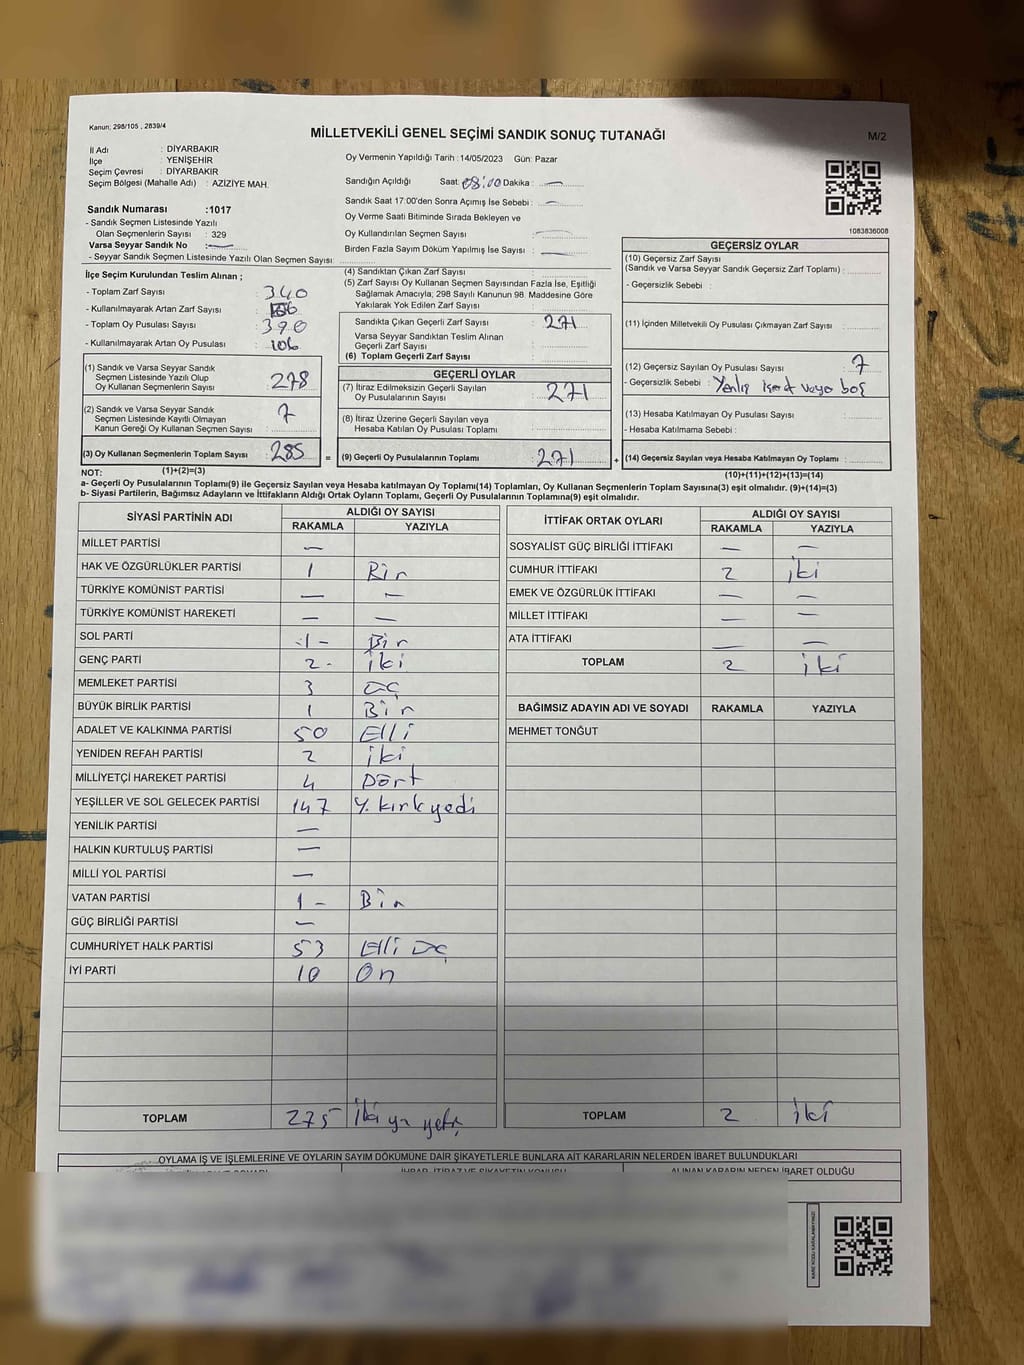 Kanun: 298/105 , 2839/4
MİLLETVEKİLİ GENEL SEÇİMİ SANDIK SONUÇ TUTANAĞI
M/2
İl Adı : DİYARBAKIR
İlçe : YENİŞEHİR
Seçim Çevresi : DİYARBAKIR
Seçim Bölgesi (Mahalle Adı) : AZİZİYE MAH.
Sandık Numarası :1017
- Sandık Seçmen Listesinde Yazılı
Olan Seçmenlerin Sayısı : 329
Varsa Seyyar Sandık No : —
- Seyyar Sandık Seçmen Listesinde Yazılı Olan Seçmen Sayısı:
Oy Vermenin Yapıldığı Tarih : 14/05/2023 Gün: Pazar
Sandığın Açıldığı Saat: 08:00 Dakika : —
Sandık Saat 17:00'den Sonra Açımış İse Sebebi : —
Oy Verme Saati Bitiminde Sırada Bekleyen ve
Oy Kullandırılan Seçmen Sayısı : —
Birden Fazla Sayım Döküm Yapılmış İse Sayısı : —
1083836008
İlçe Seçim Kurulundan Teslim Alınan ;
- Toplam Zarf Sayısı : 340
- Kullanılmayarak Artan Zarf Sayısı :
- Toplam Oy Pusulası Sayısı : 390
- Kullanılmayarak Artan Oy Pusulası : 106
(1) Sandık ve Varsa Seyyar Sandık
Seçmen Listesinde Yazılı Olup
Oy Kullanan Seçmenlerin Sayısı : 278
(2) Sandık ve Varsa Seyyar Sandık
Seçmen Listesinde Kayıtlı Olmayan
Kanun Gereği Oy Kullanan Seçmen Sayısı : 7
(3) Oy Kullanan Seçmenlerin Toplam Sayısı : 285 =
(1)+(2)=(3)
(4) Sandıktan Çıkan Zarf Sayısı :
(5) Zarf Sayısı Oy Kullanan Seçmen Sayısından Fazla İse, Eşitliği
Sağlamak Amacıyla; 298 Sayılı Kanunun 98. Maddesine Göre
Yakılarak Yok Edilen Zarf Sayısı :
Sandıkta Çıkan Geçerli Zarf Sayısı : 271
Varsa Seyyar Sandıktan Teslim Alınan
Geçerli Zarf Sayısı :
(6) Toplam Geçerli Zarf Sayısı :
GEÇERLİ OYLAR
(7) İtiraz Edilmeksizin Geçerli Sayılan
Oy Pusulalarının Sayısı : 271
(8) İtiraz Üzerine Geçerli Sayılan veya
Hesaba Katılan Oy Pusulası Toplamı :
(9) Geçerli Oy Pusulalarının Toplamı : 271 +
GEÇERSİZ OYLAR
(10) Geçersiz Zarf Sayısı
(Sandık ve Varsa Seyyar Sandık Geçersiz Zarf Toplamı) :
- Geçersizlik Sebebi :
(11) İçinden Milletvekili Oy Pusulası Çıkmayan Zarf Sayısı :
(12) Geçersiz Sayılan Oy Pusulası Sayısı : 7
- Geçersizlik Sebebi : Yanlış veya boş
(13) Hesaba Katılmayan Oy Pusulası Sayısı :
- Hesaba Katılmama Sebebi :
(14) Geçersiz Sayılan veya Hesaba Katılmayan Oy Toplamı :
(10)+(11)+(12)+(13)=(14)
NOT:
a- Geçerli Oy Pusulalarının Toplamı(9) ile Geçersiz Sayılan veya Hesaba Katılmayan Oy Toplamı(14) Toplamları, Oy Kullanan Seçmenlerin Toplam Sayısına(3) eşit olmalıdır. (9)+(14)=(3)
b- Siyasi Partilerin, Bağımsız Adayların ve İttifakların Aldığı Ortak Oyların Toplamı, Geçerli Oy Pusulalarının Toplamına(9) eşit olmalıdır.
SİYASİ PARTİNİN ADI ALDIĞI OY SAYISI
RAKAMLA YAZIYLA
MİLLET PARTİSİ —
HAK VE ÖZGÜRLÜKLER PARTİSİ 1 Bir
TÜRKİYE KOMÜNİST PARTİSİ — —
TÜRKİYE KOMÜNİST HAREKETİ — —
SOL PARTİ -1- Bir
GENÇ PARTİ 2- iki
MEMLEKET PARTİSİ 3 üç
BÜYÜK BİRLİK PARTİSİ 1 Bir
ADALET VE KALKINMA PARTİSİ 50 Elli
YENİDEN REFAH PARTİSİ 2 iki
MİLLİYETÇİ HAREKET PARTİSİ 4 Dört
YEŞİLLER VE SOL GELECEK PARTİSİ 147 Y. kırk yedi
YENİLİK PARTİSİ —
HALKIN KURTULUŞ PARTİSİ —
MİLLİ YOL PARTİSİ —
VATAN PARTİSİ 1- Bir
GÜÇ BİRLİĞİ PARTİSİ —
CUMHURİYET HALK PARTİSİ 53 Elli üç
İYİ PARTİ 10 On
TOPLAM 275 iki yü
İTTİFAK ORTAK OYLARI ALDIĞI OY SAYISI
RAKAMLA YAZIYLA
SOSYALİST GÜÇ BİRLİĞİ İTTİFAKI — —
CUMHUR İTTİFAKI 2 iki
EMEK VE ÖZGÜRLÜK İTTİFAKI — —
MİLLET İTTİFAKI — —
ATA İTTİFAKI — —
TOPLAM 2 iki
BAĞIMSIZ ADAYIN ADI VE SOYADI RAKAMLA YAZIYLA
MEHMET TONĞUT
TOPLAM 2 iki
OYLAMA İŞ VE İŞLEMLERİNE VE OYLARIN SAYIM DÖKÜMÜNE DAİR ŞİKAYETLERLE BUNLARA AİT KARARLARIN NELERDEN İBARET BULUNDUKLARI
İHBAR, İTİRAZ VE ŞİKAYETİN KONUSU ALINAN KARARIN NEDEN İBARET OLDUĞU